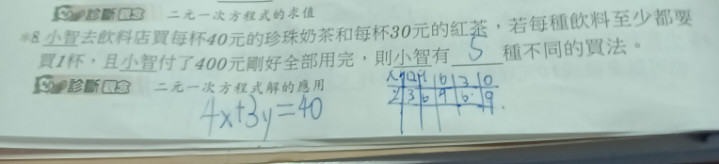 診斷觀念 二元一次方程式的求值
*8. 小智去飲料店買每杯40元的珍珠奶茶和每杯30元的紅茶，若每種飲料至少都要
買1杯，且小智付了400元剛好全部用完，則小智有 5 種不同的買法。
診斷觀念 二元一次方程式解的應用
4x+3y=40